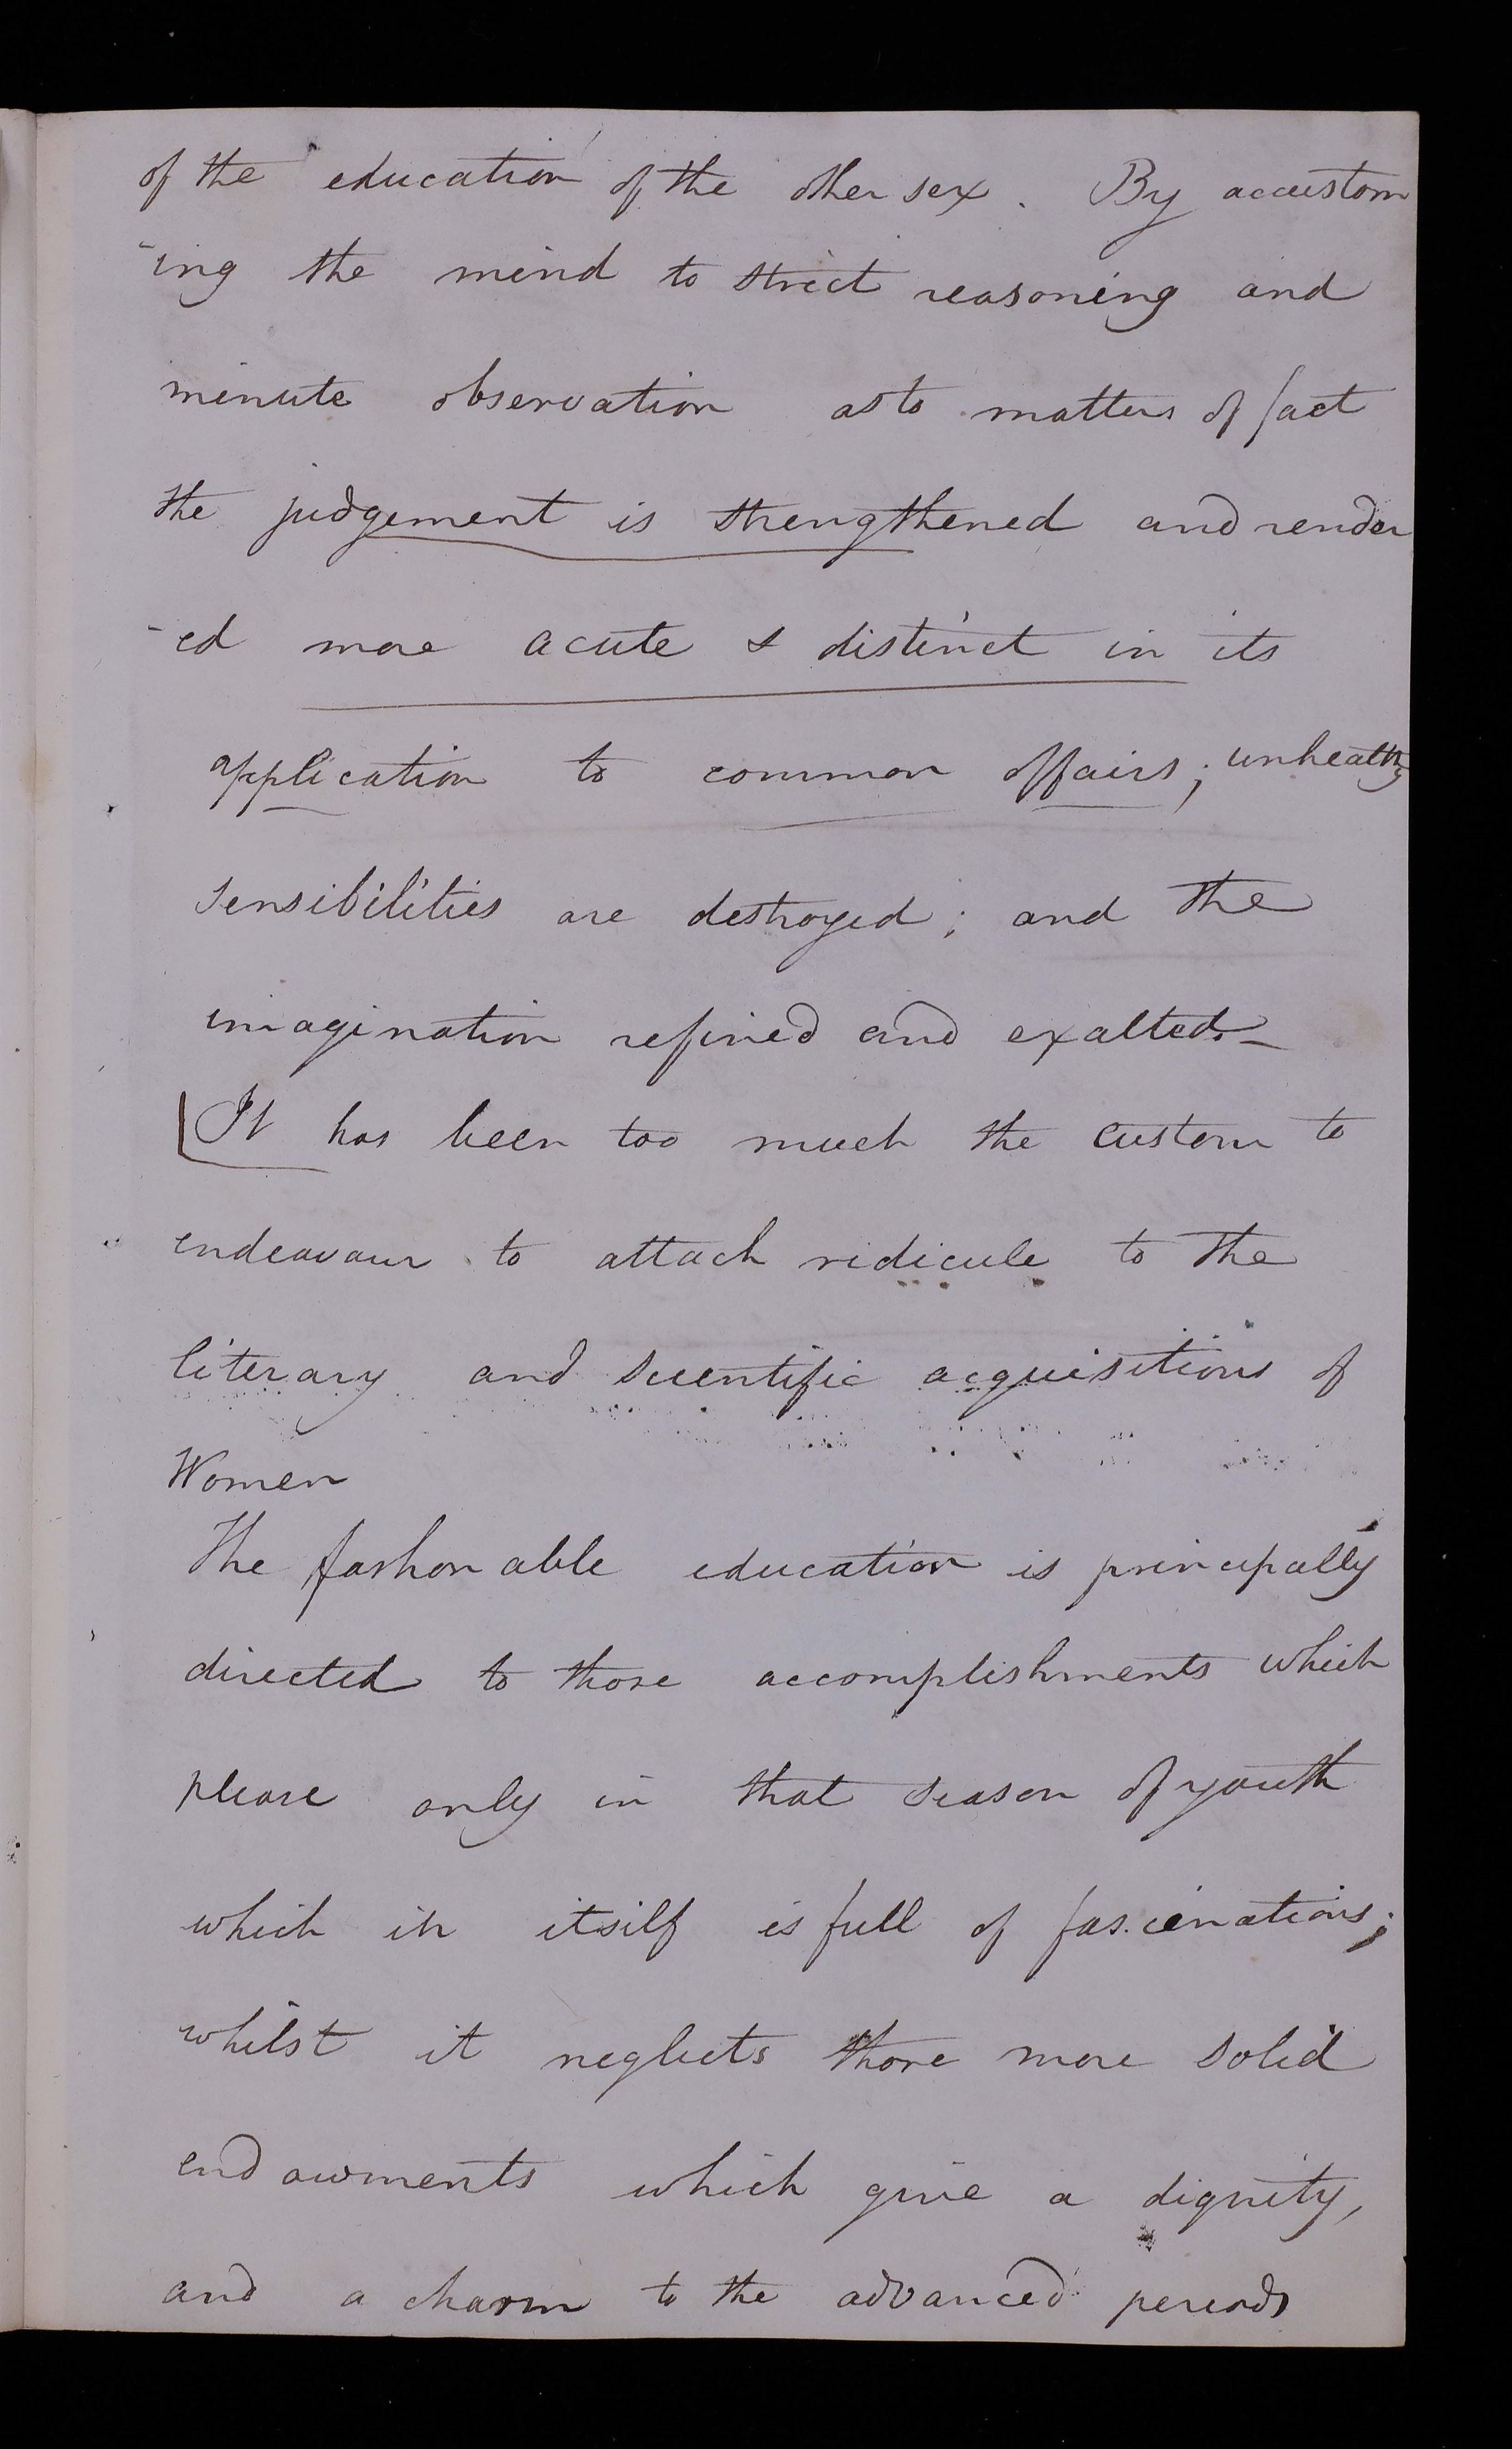 of the education of the other sex. By accustom
-ing the mind to strict reasoning and
minute observation as to matters of fact
the judgement is strengthened and render
-ed more acute & distinct in its
application to common affairs; unhealthy
sensibilities are destroyed; and the
imagination refined and exalted. _
It has been too much the custom to
endeavour to attach ridicule to the
literary and scientific acquisitions of
Women
The fashonable education is principally
directed to those accomplishments which
please only in that season of youth
which in itself is full of fascinations;
whilst it neglects those more solid
endowments which give a dignity,
and a charm to the advanced periods